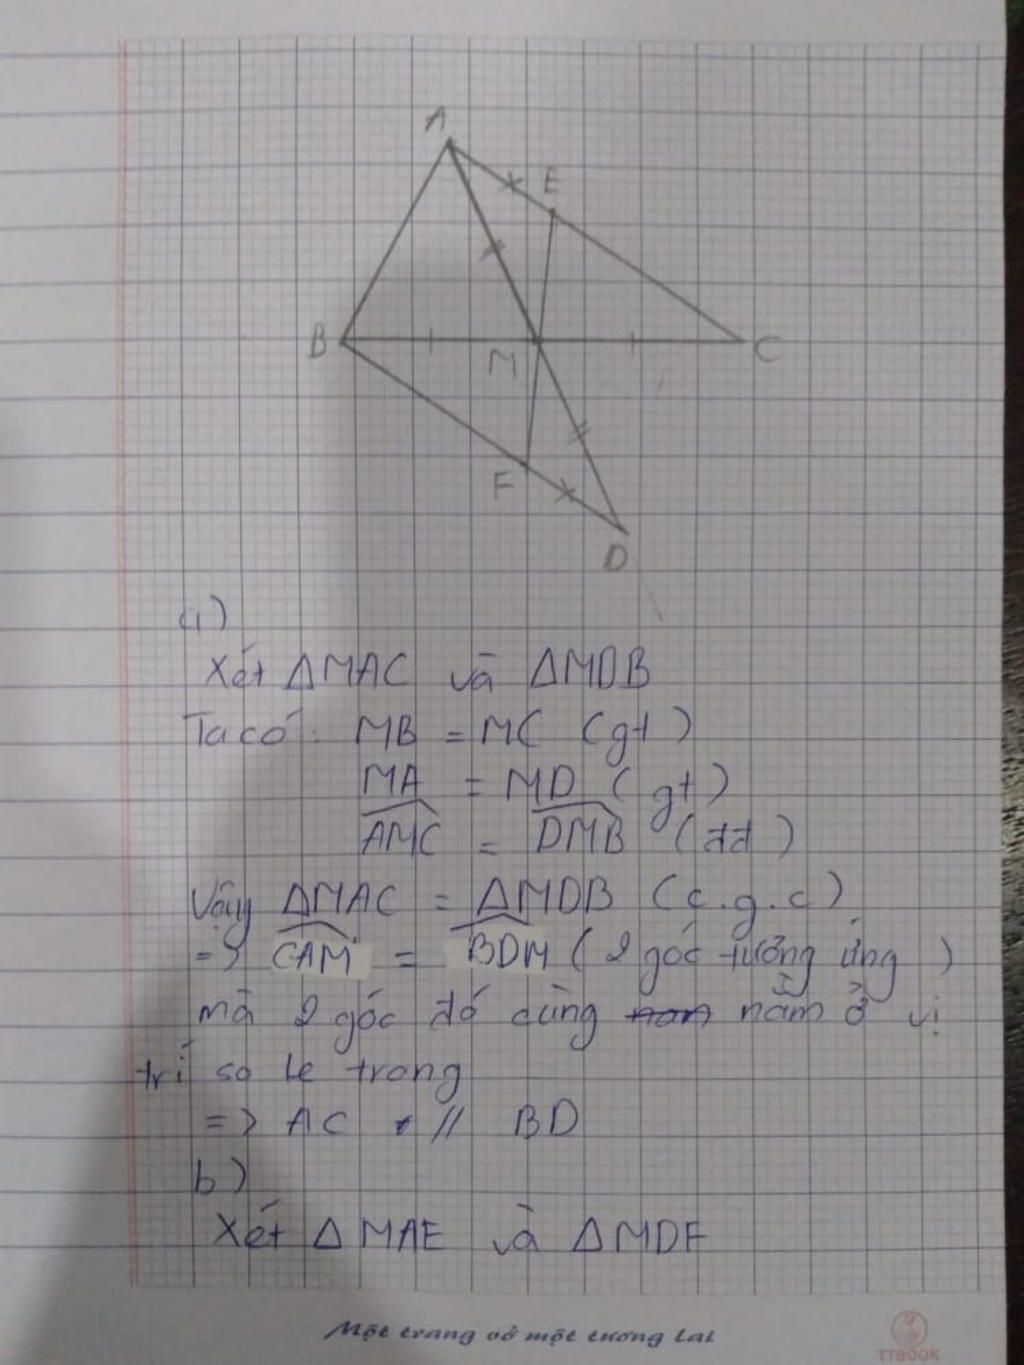 A
E
B
M
C
F
D
a)
Xét ΔMAC và ΔMDB
Ta có : MB = MC (gt)
MA = MD (gt)
\widehat{AMC} = \widehat{DMB} (đđ)
Vậy ΔMAC = ΔMDB (c.g.c)
=> \widehat{CAM} = \widehat{BDM} (2 góc tương ứng)
mà 2 góc đó cùng nằm ở vị
trí so le trong
=> AC // BD
b)
Xét ΔMAE và ΔMDF
Một trang vở một tương lai
TTBOOK